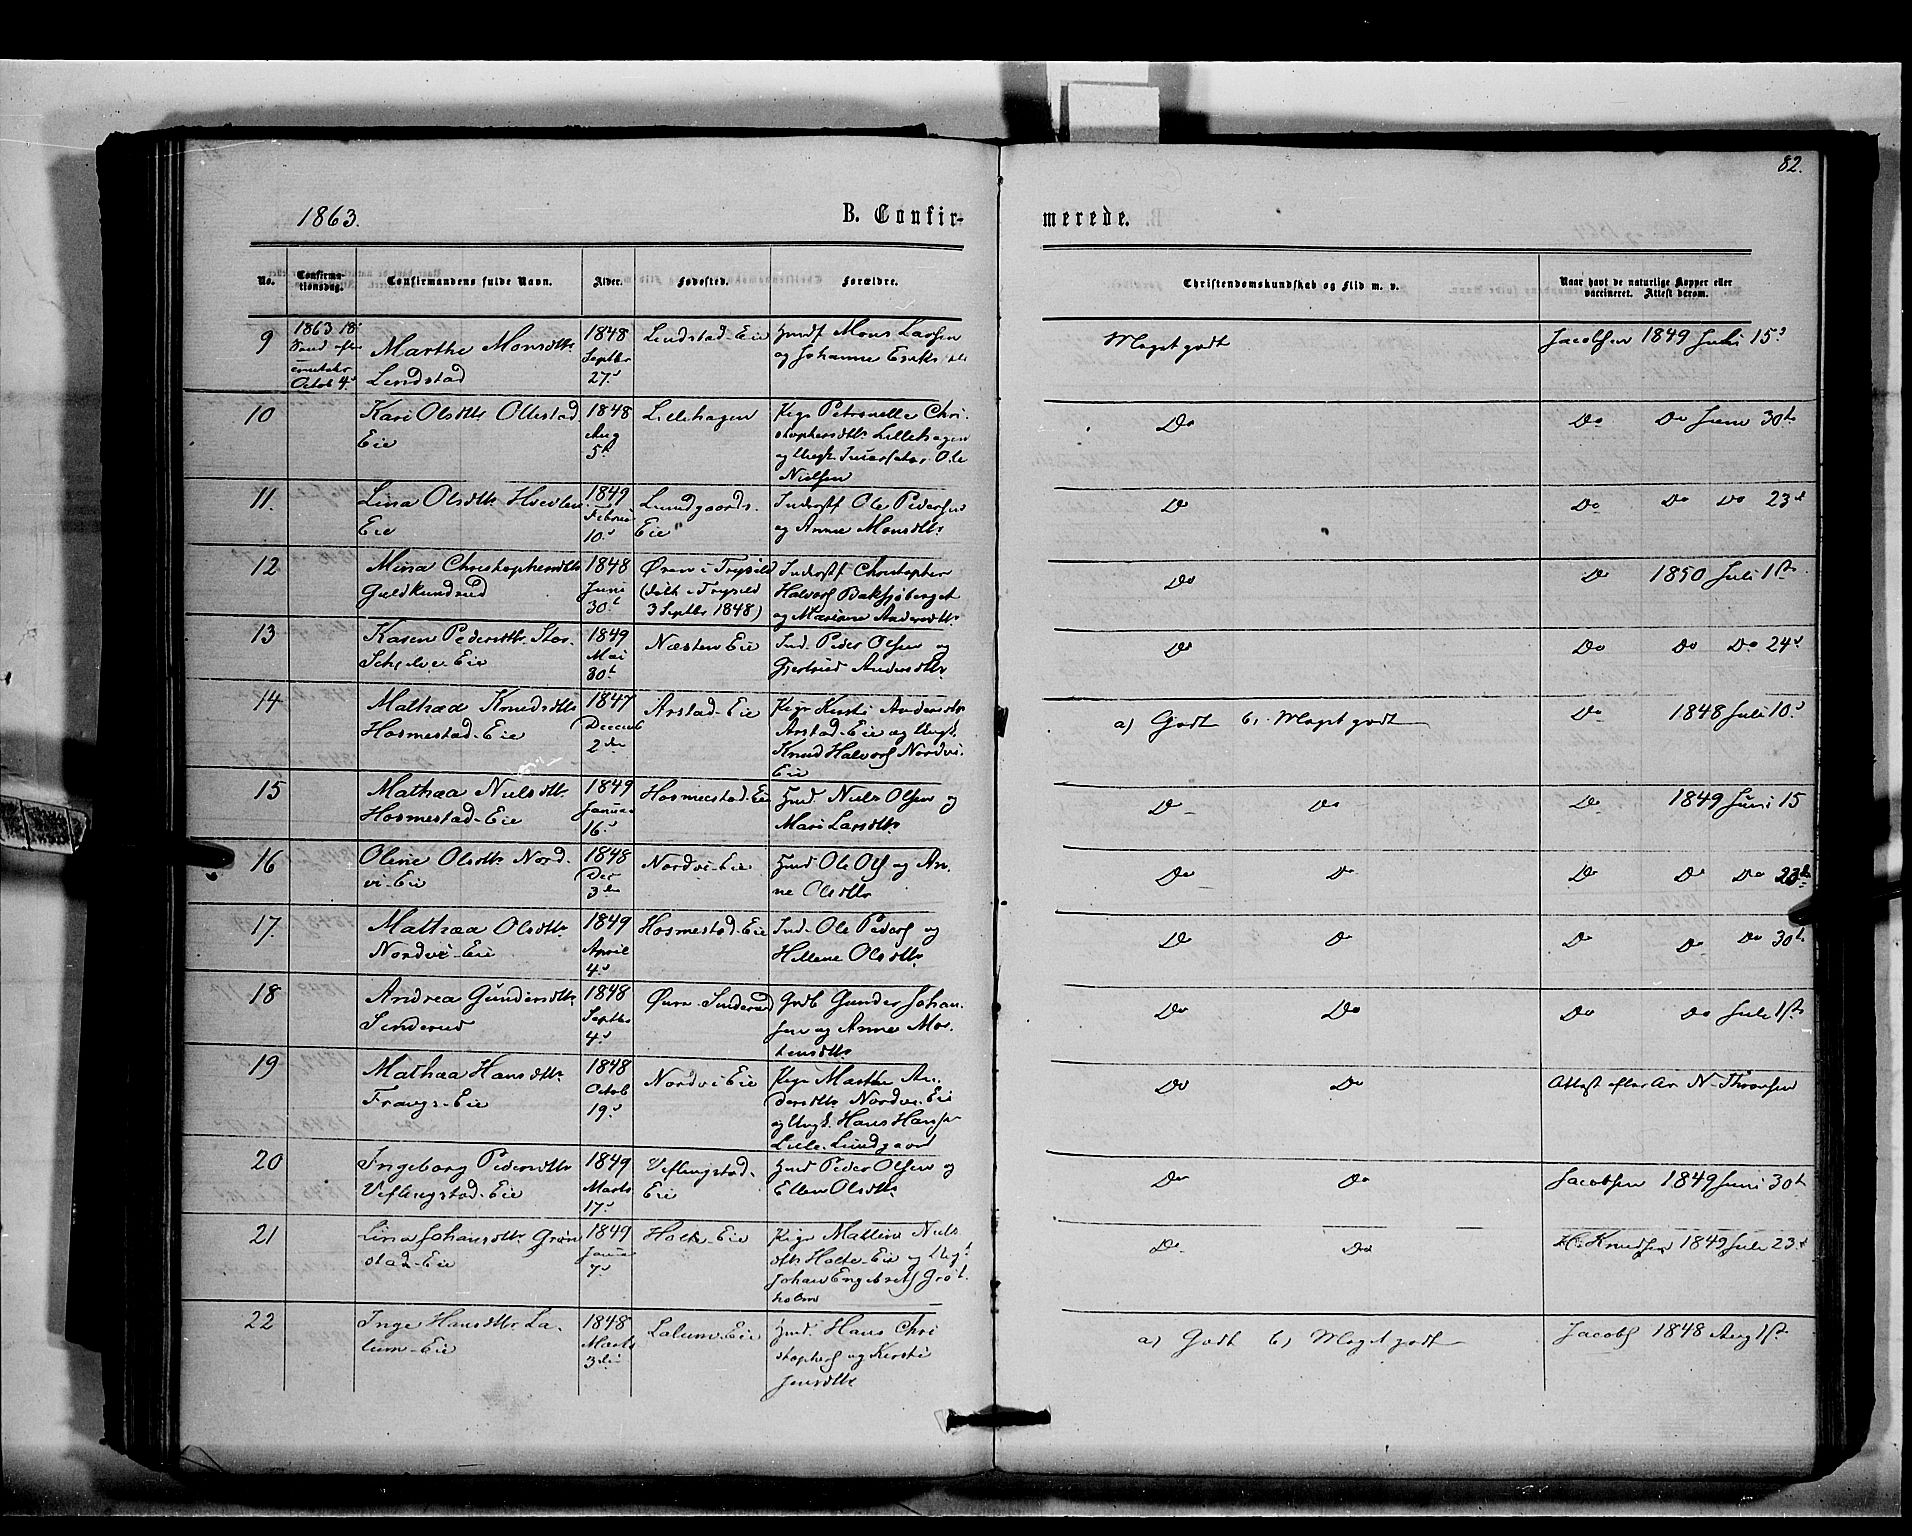 82.
1863.
B. Confir-
merede.
No.
Confirma-
tionsdag.
Confirmandens fulde Navn.
Alder.
Fødested.
Forældre.
Christendomskundskab og Flid m. v.
Naar havt de naturlige Kopper eller
vaccineret. Attest derom.
9
1863 18
Octob 4.
Marthe Monsdtr
Lindstad
1848
Septbr
27.
Lindstad-Eie
Husmd Mons Larsen
og Johanne Eriksdtr
Meget godt
Jacobsen 1849 Juli 15
10
Kari Olsdtr Ollestad
Eie
1848
Aug
5t
Lillehagen
Pige Petronelle Chri-
stophersdtr Lillehagen
og Ungk. Ole
Nielsen
Do
Do Do Juni 30te
11.
Lina Olsdtr
Eie
1849
Februar
10.
Lundgaards-
Eie
Inderstf Ole Pedersen
og Anne Monsdtr
Do
Do Do Do 23d
12
Mina Christophersdtr
Guldkundrud
1848
Juni
30t
Øren i Trysild
(døbt i Trysild
3 Septbr 1848)
Inderstf Christopher
Halvors Baksjøberget
og Mariane Andersdtr
Do
Do 1850 Juli 1ste
13
Karen Pedersdtr Stor-
Schjelve-Eie
1849
Mai
30t
Næsten Eie
Ind. Peder Olsen og
Gjertrud Andersdtr
Do
Do Do Do 24
14
Mathea Knudsdtr
Hosmestad-Eie
1847
Decemb
2den
Arstad-Eie
Pige Kirsti Andersdtr
Arstad-Eie og Ungk.
Knud Halvors Nordvi-
Eie
a) Godt b) Meget godt
Do 1848 Juli 10.
15
Mathea Nielsdtr
Hosmestad-Eie
1849
Januar
16.
Hosmestad-Eie
Husmd Niels Olsen og
Mari Larsdtr
Do Do
Do 1849 Juni 15
16
Oline Olsdtr Nord-
vi-Eie
1848
Dec
3de
Nordvi-Eie
Husmd Ole Ols og An-
ne Olsdtr
Do Do
Do Do Do 23de
17.
Mathea Olsdtr
Nordvi-Eie
1849
April
4.
Hosmestad-Eie
Ind. Ole Peders og
Hellene Olsdtr
Do Do
Do Do Do 30te
18
Andrea Gundersdtr
Sinderud
1848
Septbr
4.
Øvre Sinderud
Grdb Gunder Johan-
sen og Anne Mor-
tensdtr
Do Do
Do Do Juli 1ste
19
Mathea Hansdtr
Frangs-Eie
1848
Octob
19.
Nordvi Eie
Pige Marthe An-
dersdtr Nordvi-Eie
og Ungk. Hans Hansen
Lille-Lundgaard
Do Do
Attest efter N. Thronsen
20
Ingeborg Pedersdtr
Veflingstad-Eie
1849
Marts
17.
Veflingstad-
Eie
Husmd Peder Olsen og
Ellen Olsdtr
Do Do
Jacobsen 1849 Juni 30t
21
Lina Johansdtr Grøn-
stad-Eie
1849
Januar
7.
Holte-Eie
Pige Mattina Niels-
dtr Holte-Eie og Ungk
Johan Engebrets Grøt-
holm
Do Do
H. Knudsen 1849 Juli 23
22
Inge Hansdtr La-
lum-Eie
1848
Marts
3die
Lalum-Eie
Husmd. Hans Chri-
stophers og Kirsti
Jensdtr
a) Godt b) Meget godt
Jacobs 1848 Aug 1ste